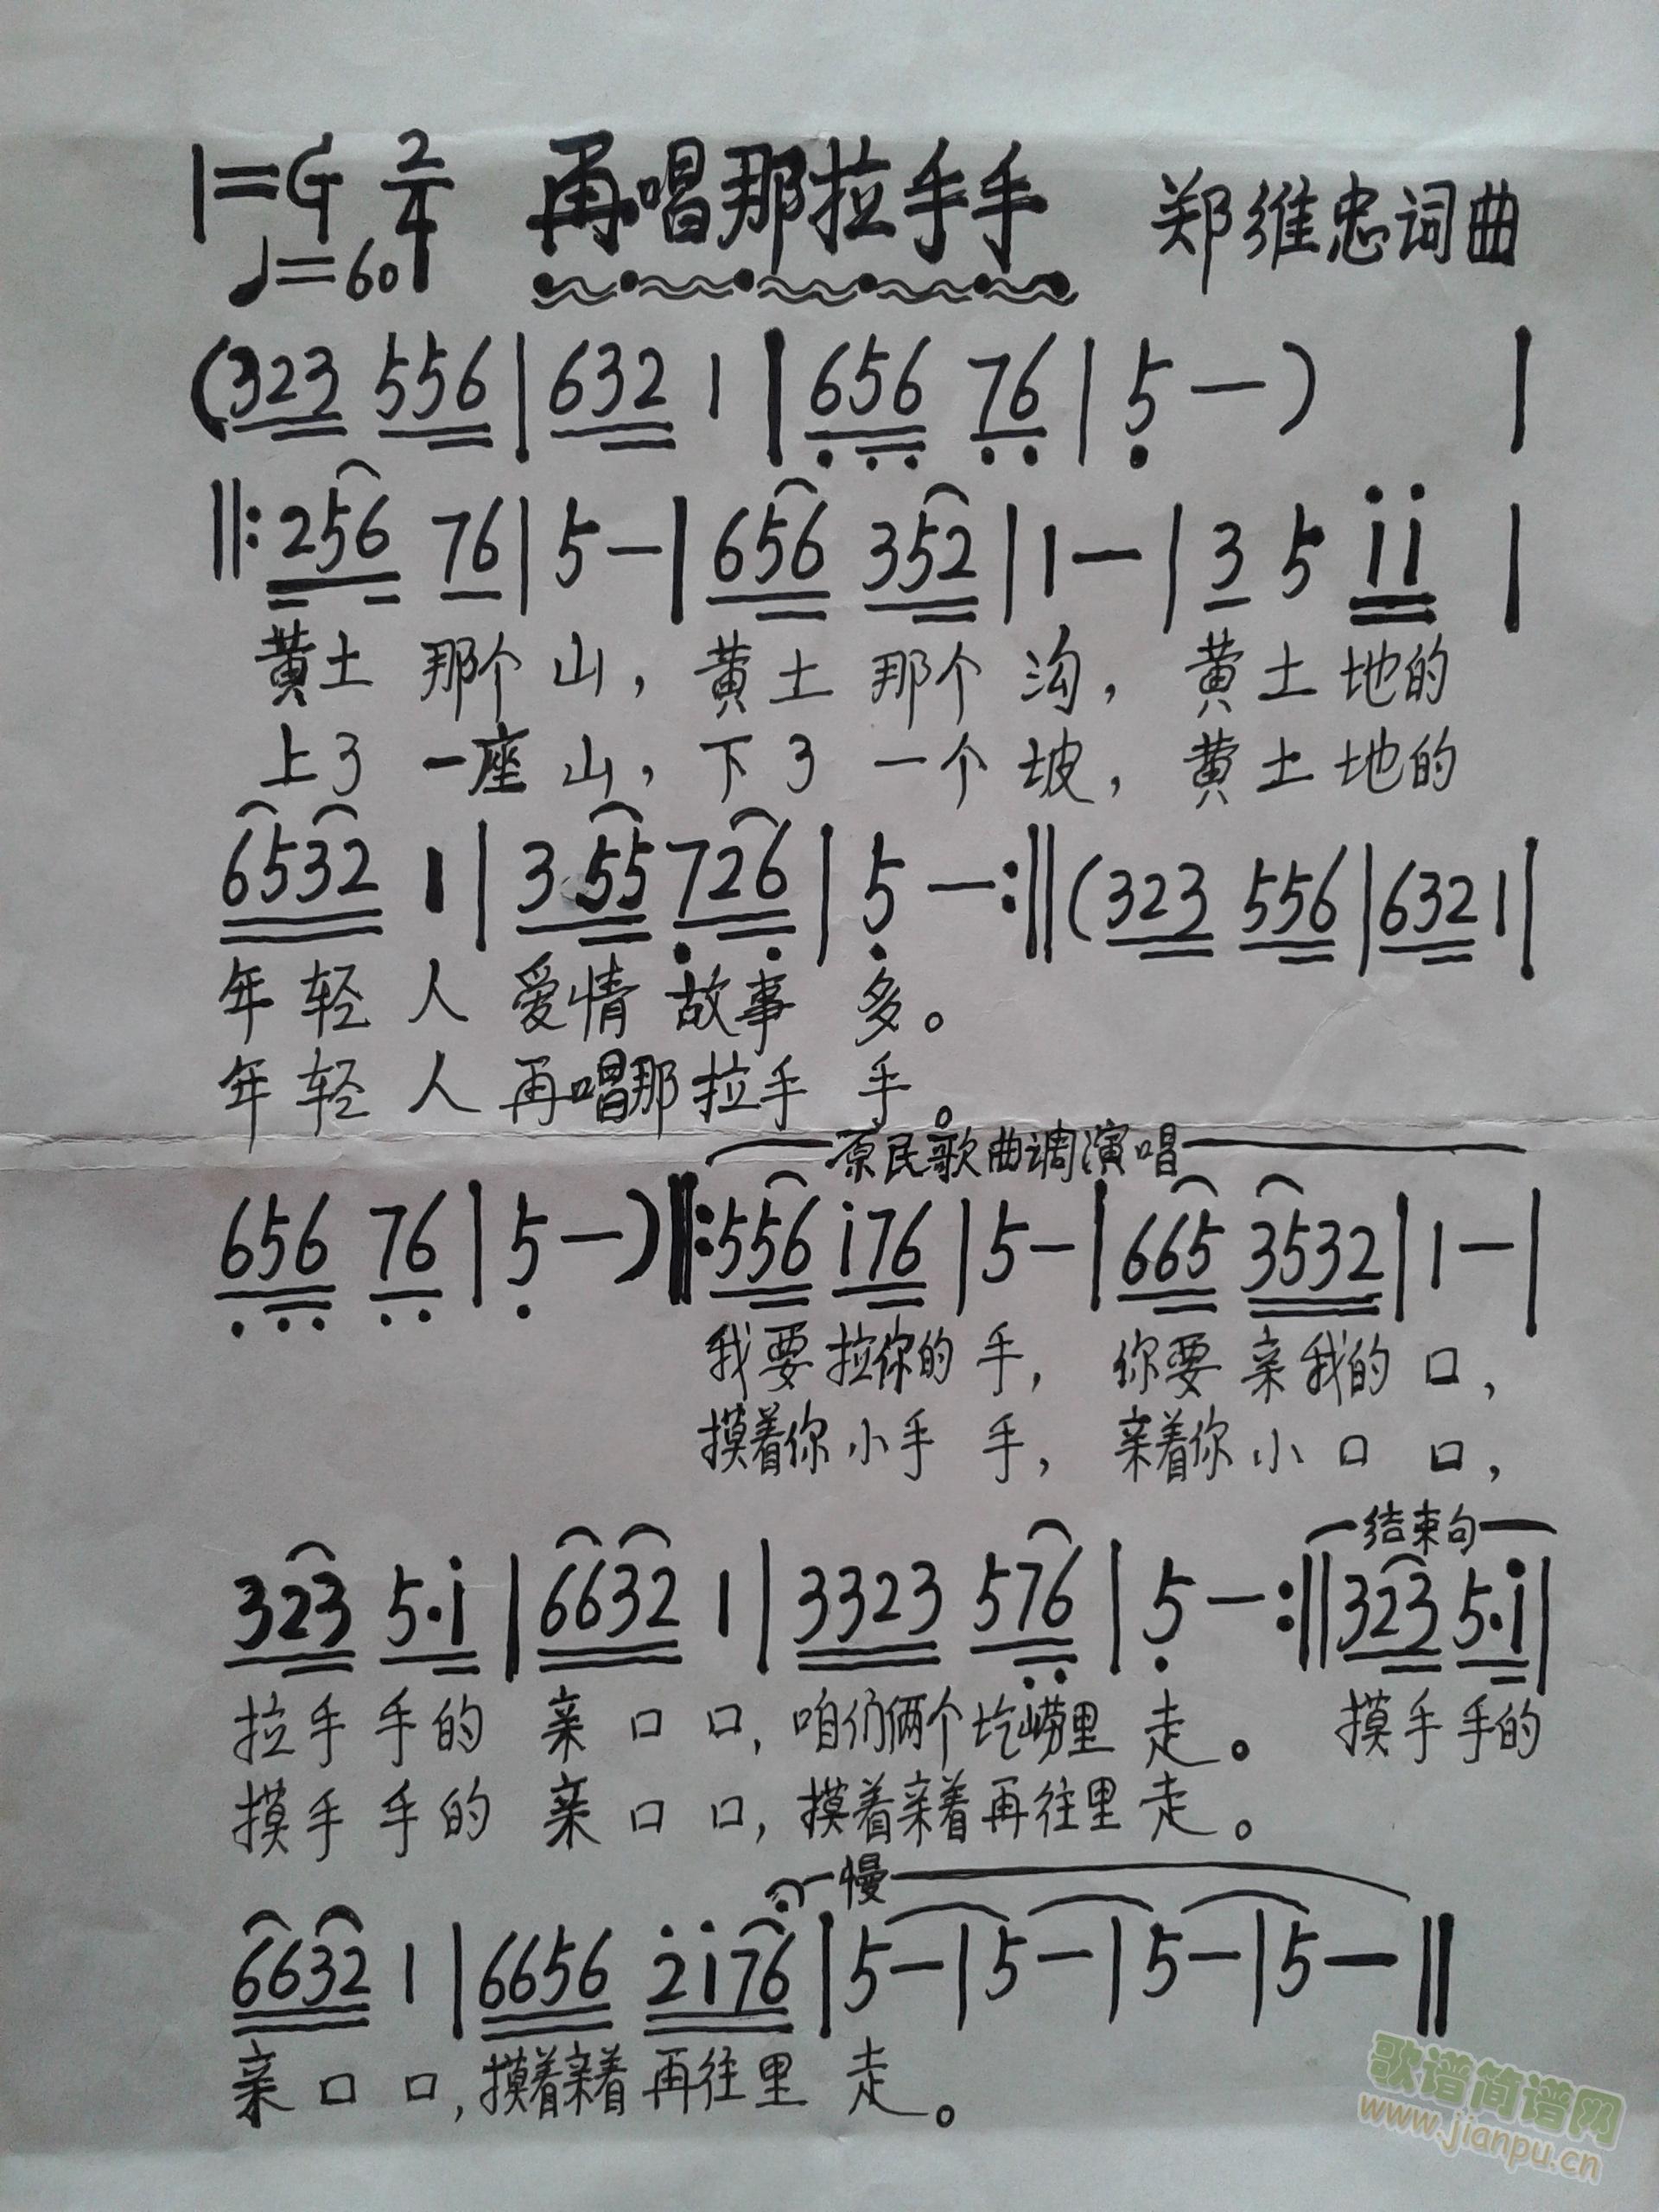 1=G 2/4 再唱那拉手手 郑维忠词曲
♩=60
(323 556 | 632 1 | 656 76 | 5 — ) |
‖: 256 76 | 5 — | 656 352 | 1 — | 3 5 i i |
黄土 那个 山, 黄土 那个 沟, 黄土地的
上了 一座 山, 下了 一个 坡, 黄土地的
6532 1 | 3.55 726 | 5 — :‖ (323 556 | 632 1 |
年轻人 爱情 故事 多。
年轻人 再唱那 拉手 手。
原民歌曲调演唱
656 76 | 5 — ) ‖: 556 i76 | 5 — | 665 3532 | 1 — |
我要 拉你的 手, 你要 亲我的 口,
摸着你 小手 手, 亲着你 小口 口,
结束句
323 5·i | 6632 1 | 3323 576 | 5 — :‖ 323 5·i |
拉手手的 亲口口, 咱们俩个圪崂里 走。 摸手手的
摸手手的 亲口口, 摸着亲着再往里 走。
慢
6632 1 | 6656 2i76 | 5 — | 5 — | 5 — | 5 — ‖
亲口口, 摸着亲着 再往里 走。
歌谱简谱网
www.jianpu.cn